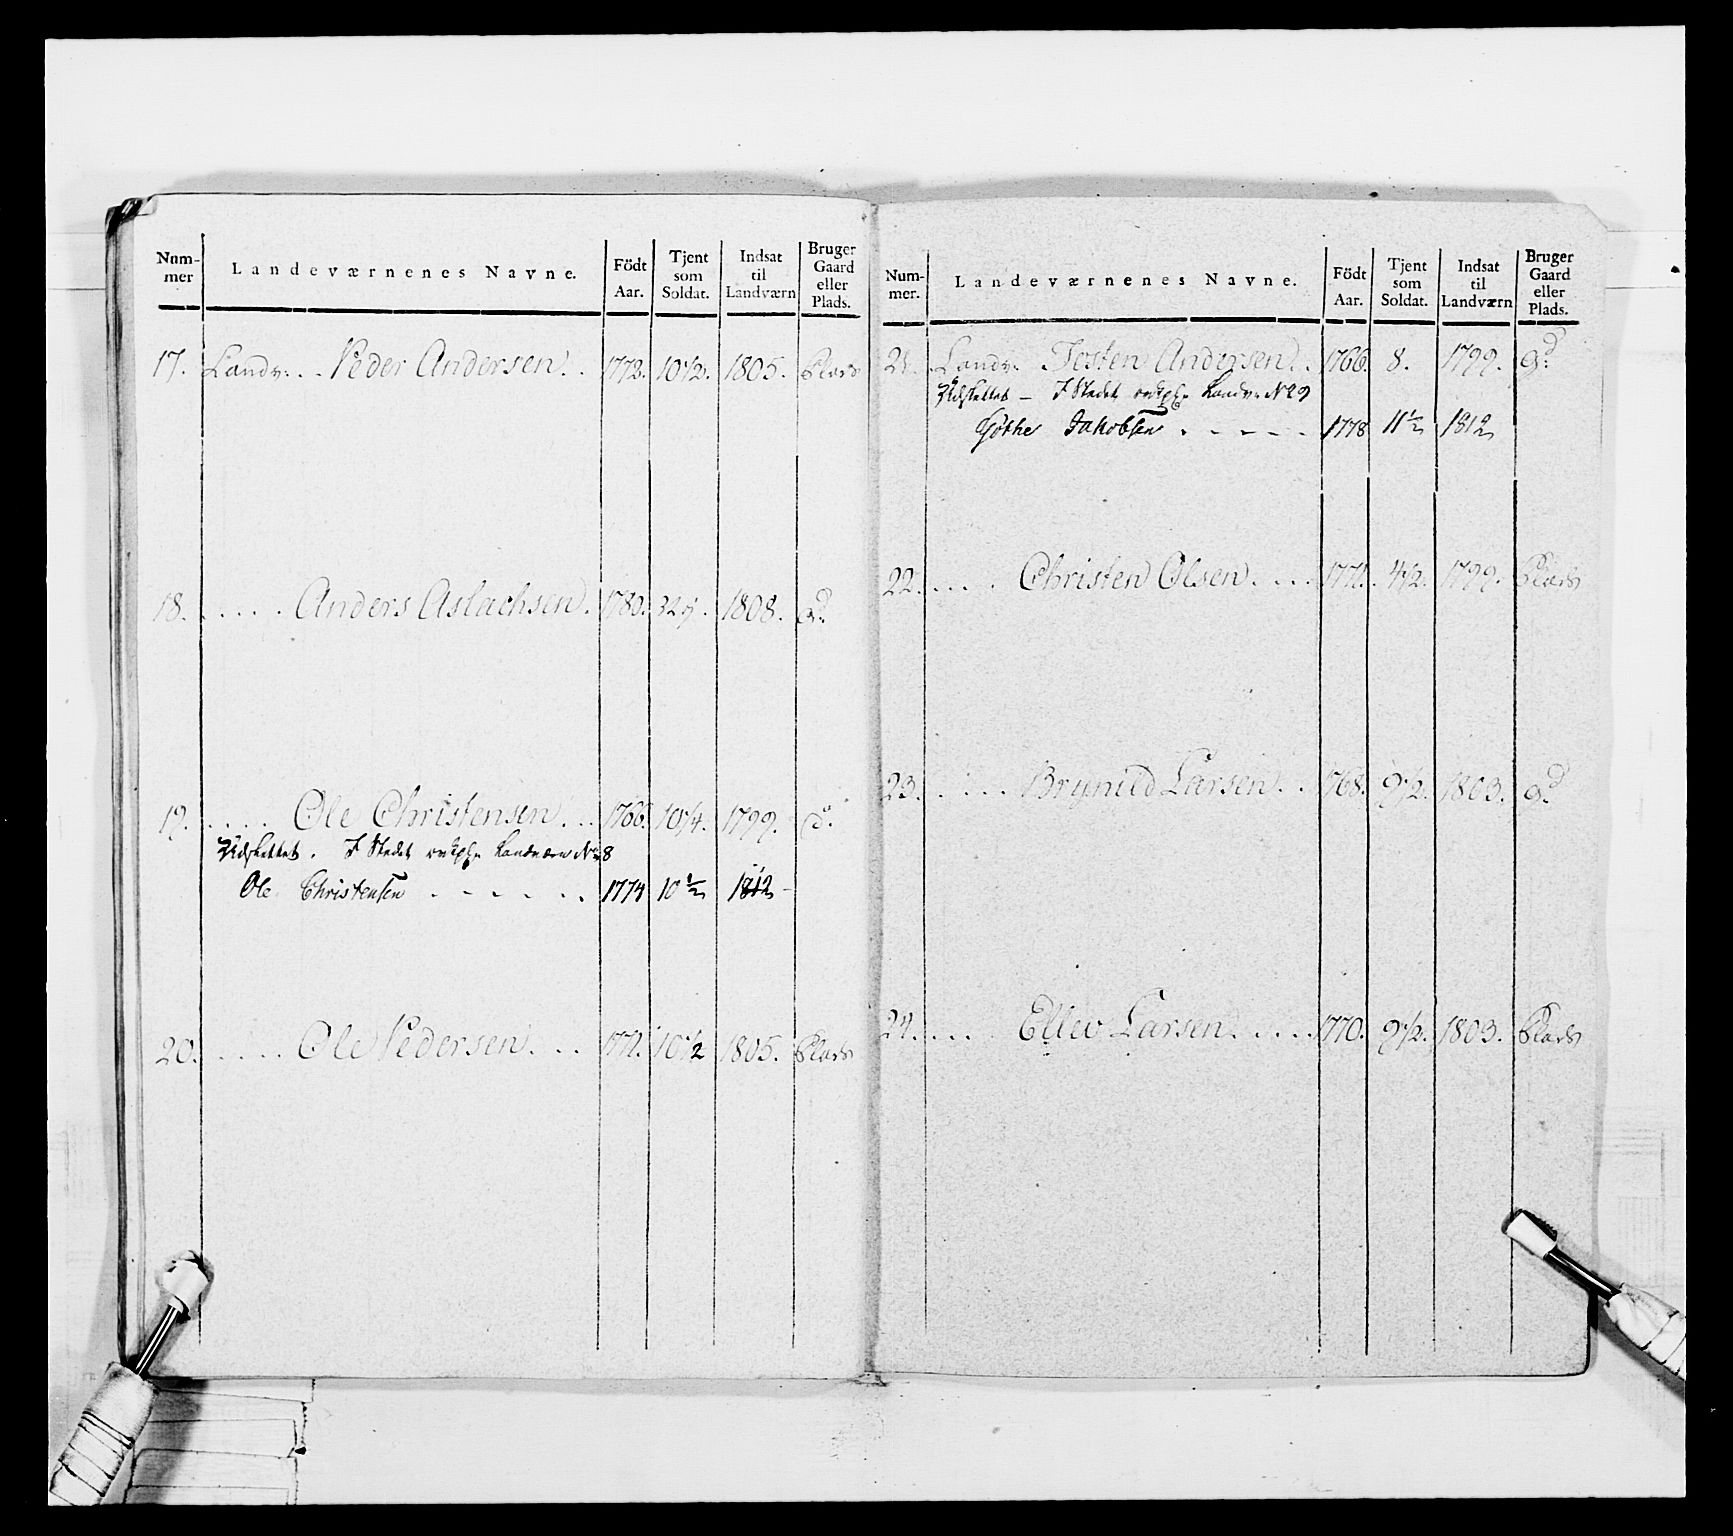 Num-
mer
Landeværnenes Navne.
Födt
Aar.
Tjent
som
Soldat.
Indsat
til
Landværn
Bruger
Gaard
eller
Plads.
17. Landv. . . Peder Andersen . . 1772. 10 1/2. 1805. Plads
18. . . . . Anders Aslachsen . 1780. 1808. Gd.
19. . . . . Ole Christensen . . . 1766. 10 1/4. 1799. do.
Udslettet . I Stedet Landværn No 8
Ole Christensen - - - - - . 1774 10 1/2 1812 -
20. . . . . Ole Pedersen . . . 1771. 10 1/2 1805. Plads
Num-
mer.
Landeværnenes Navne.
Födt
Aar.
Tjent
som
Soldat.
Indsat
til
Landværn
Bruger
Gaard
eller
Plads.
21. Landv. Testen Andersen . . 1766. 8. 1799. Gd.
Udslettet - I Stedet Landv. No 29
Göthe Jakobsen . - - - - 1778 11 1/2 1812
22. . . . . Christen Olsen . . . . 1771. 4 1/2. 1799. Plads
23. . . . . Brynild Larsen . . 1768. 9 1/2. 1803. Gd.
24. . . . . Ellev Larsen . . . . . 1770. 9 1/2. 1803. Plads